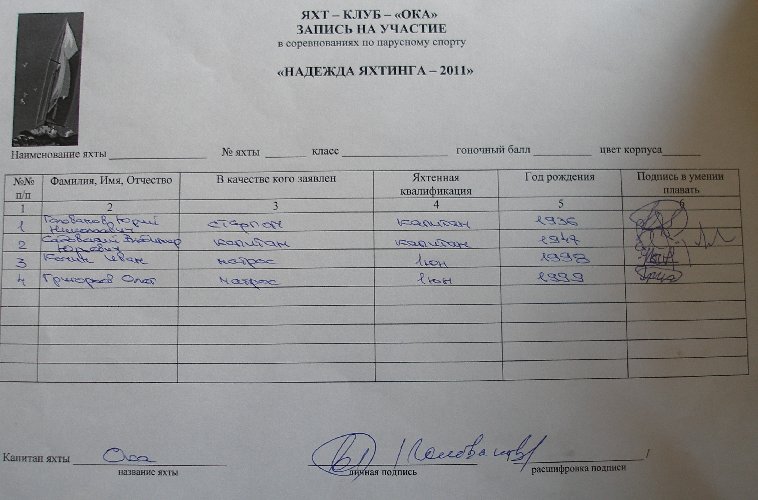 ЯХТ – КЛУБ – «ОКА»
ЗАПИСЬ НА УЧАСТИЕ
в соревнованиях по парусному спорту
«НАДЕЖДА ЯХТИНГА – 2011»
Наименование яхты № яхты класс гоночный балл цвет корпуса
№№ п/п Фамилия, Имя, Отчество В качестве кого заявлен Яхтенная квалификация Год рождения Подпись в умении плавать
1 2 3 4 5 6
1 Голованов Юрий Николаевич старпом капитан 1936
2 Владимир Юрьевич капитан капитан 1947
3 Иван матрос 1юн 1998
4 Григорьев Олег матрос 1юн 1999
Капитан яхты Ока Голованов /
название яхты личная подпись расшифровка подписи